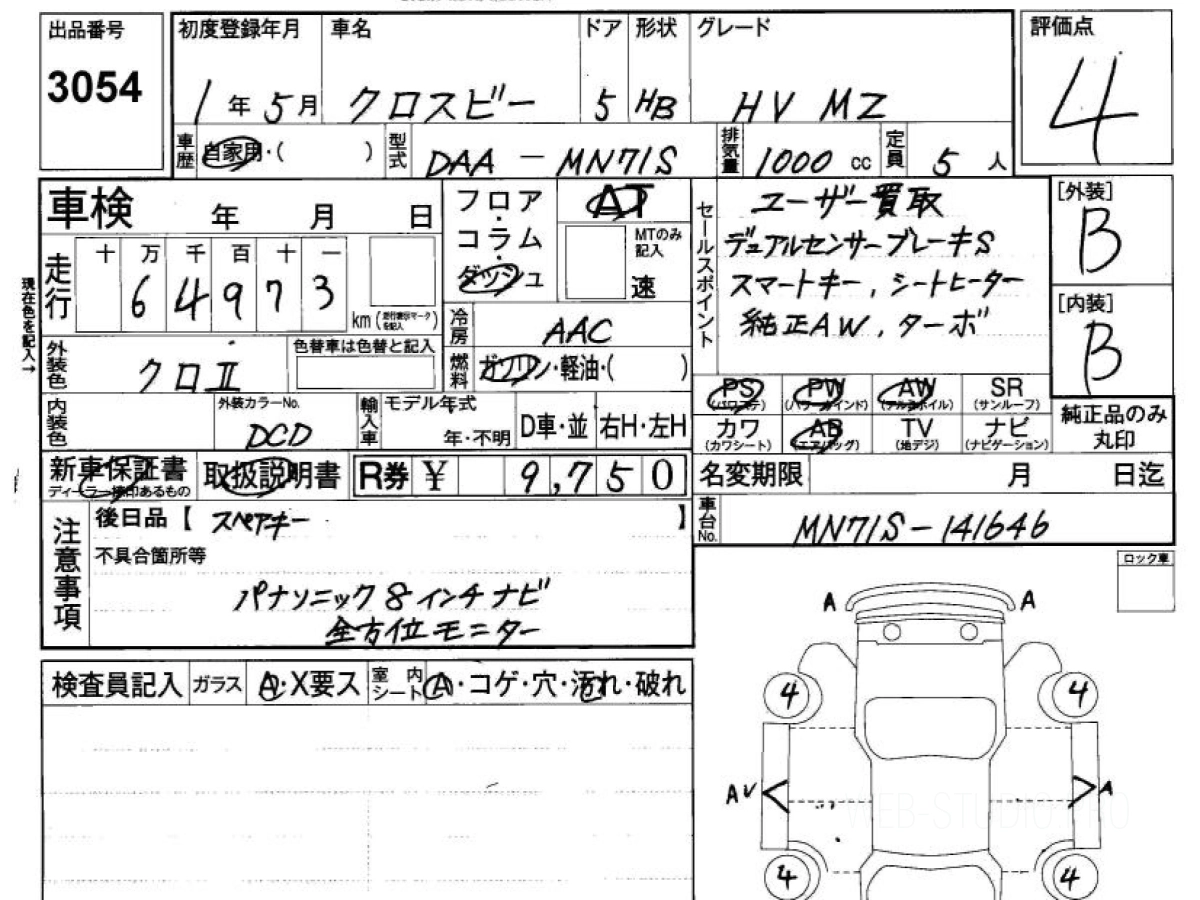 出品番号 初度登録年月 車名 ドア 形状 グレード 評価点
3054 1年 5月 クロスビー 5 HB HV MZ 4
車歴 自家用・( ) 型式 DAA-MN71S 排気量 1000 cc 定員 5 人
車検 年 月 日 フロア・コラム・ダッシュ AT セールスポイント ユーザー買取 [外装]
走行 十 万 千 百 十 一 MTのみ記入 速 デュアルセンサーブレーキS B
6 4 9 7 3 km (走行表示マークを記入) スマートキー, シートヒーター [内装]
現在色を記入→ 冷房 AAC 純正AW, ターボ B
外装色 クロⅡ 色替車は色替と記入 燃料 ガソリン・軽油・( )
PS (パワステ) PW (パワーウインド) AW (アルミホイル) SR (サンルーフ) 純正品のみ丸印
内装色 外装カラーNo. DCD 輸入車 モデル年式 年・不明 D車・並 右H・左H カワ (カワシート) AB (エアバッグ) TV (地デジ) ナビ (ナビゲーション)
新車保証書 ディーラー捺印あるもの 取扱説明書 R券 ¥ 9,750 名変期限 月 日迄
注意事項 後日品【 スペアキー 】 車台No. MN71S-141646
不具合箇所等 ロック車
パナソニック8インチナビ
全方位モニター
A A
検査員記入 ガラス A・X要ス 室内シート A・コゲ・穴・汚れ・破れ
4 4
A V A
WEB-STUDIO.PRO
4 4